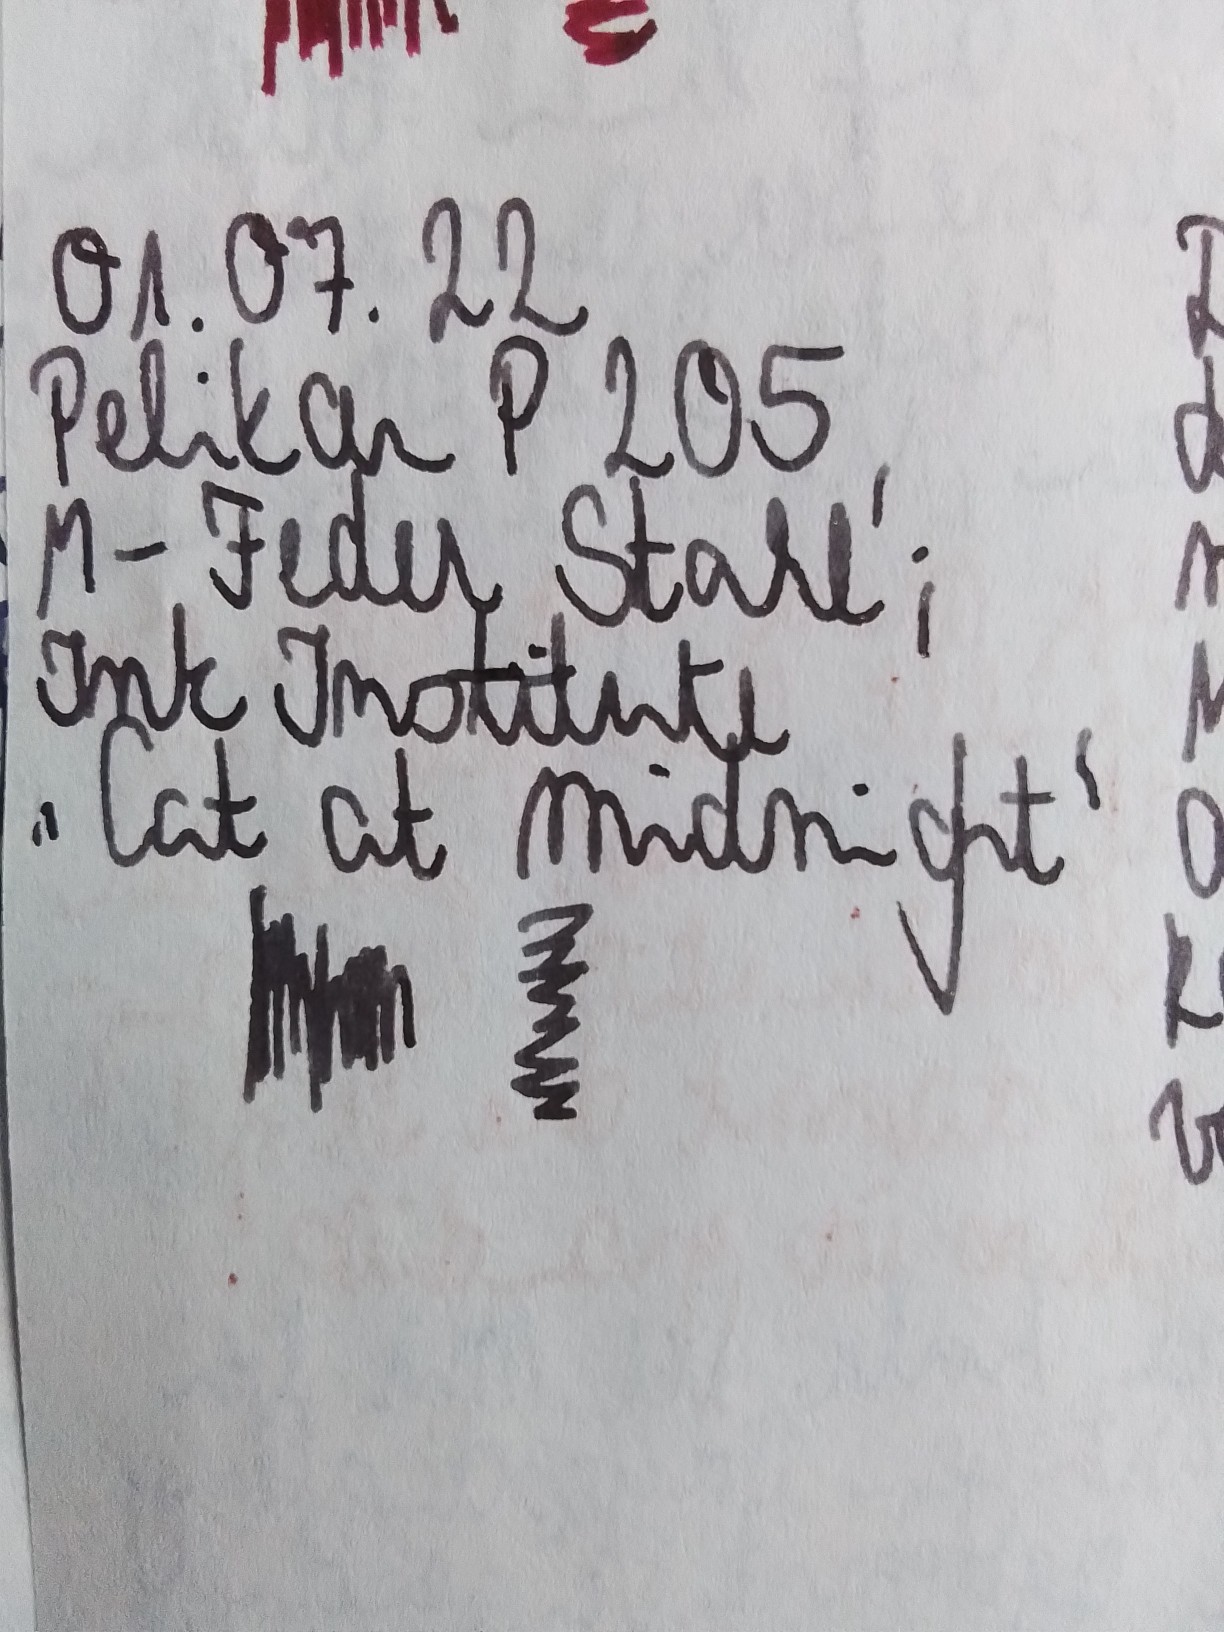 01.07.22
Pelikan P 205
M-Feder
Ink Institute
„Cat at midnight‘